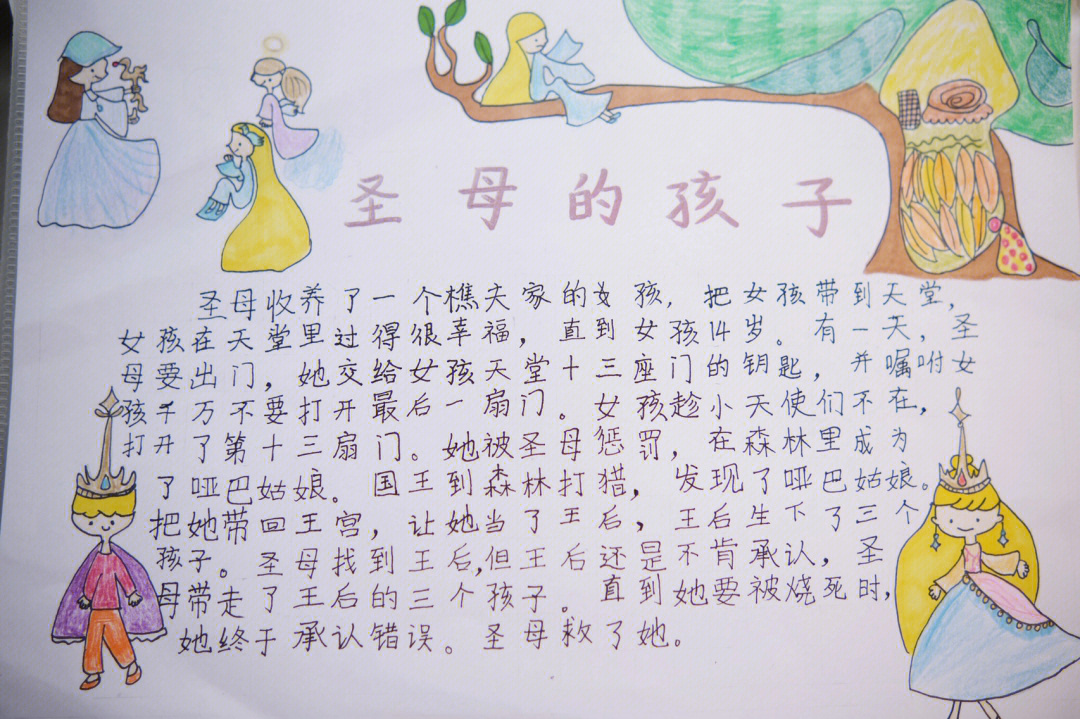 圣母的孩子
圣母收养了一个樵夫家的女孩，把女孩带到天堂，
女孩在天堂里过得很幸福，直到女孩14岁。有一天，圣
母要出门，她交给女孩天堂十三座门的钥匙，并嘱咐女
孩千万不要打开最后一扇门。女孩趁小天使们不在，
打开了第十三扇门。她被圣母惩罚，在森林里成为
了哑巴姑娘。国王到森林打猎，发现了哑巴姑娘。
把她带回王宫，让她当了王后，王后生下了三个
孩子。圣母找到王后，但王后还是不肯承认，圣
母带走了王后的三个孩子。直到她要被烧死时，
她终于承认错误。圣母救了她。